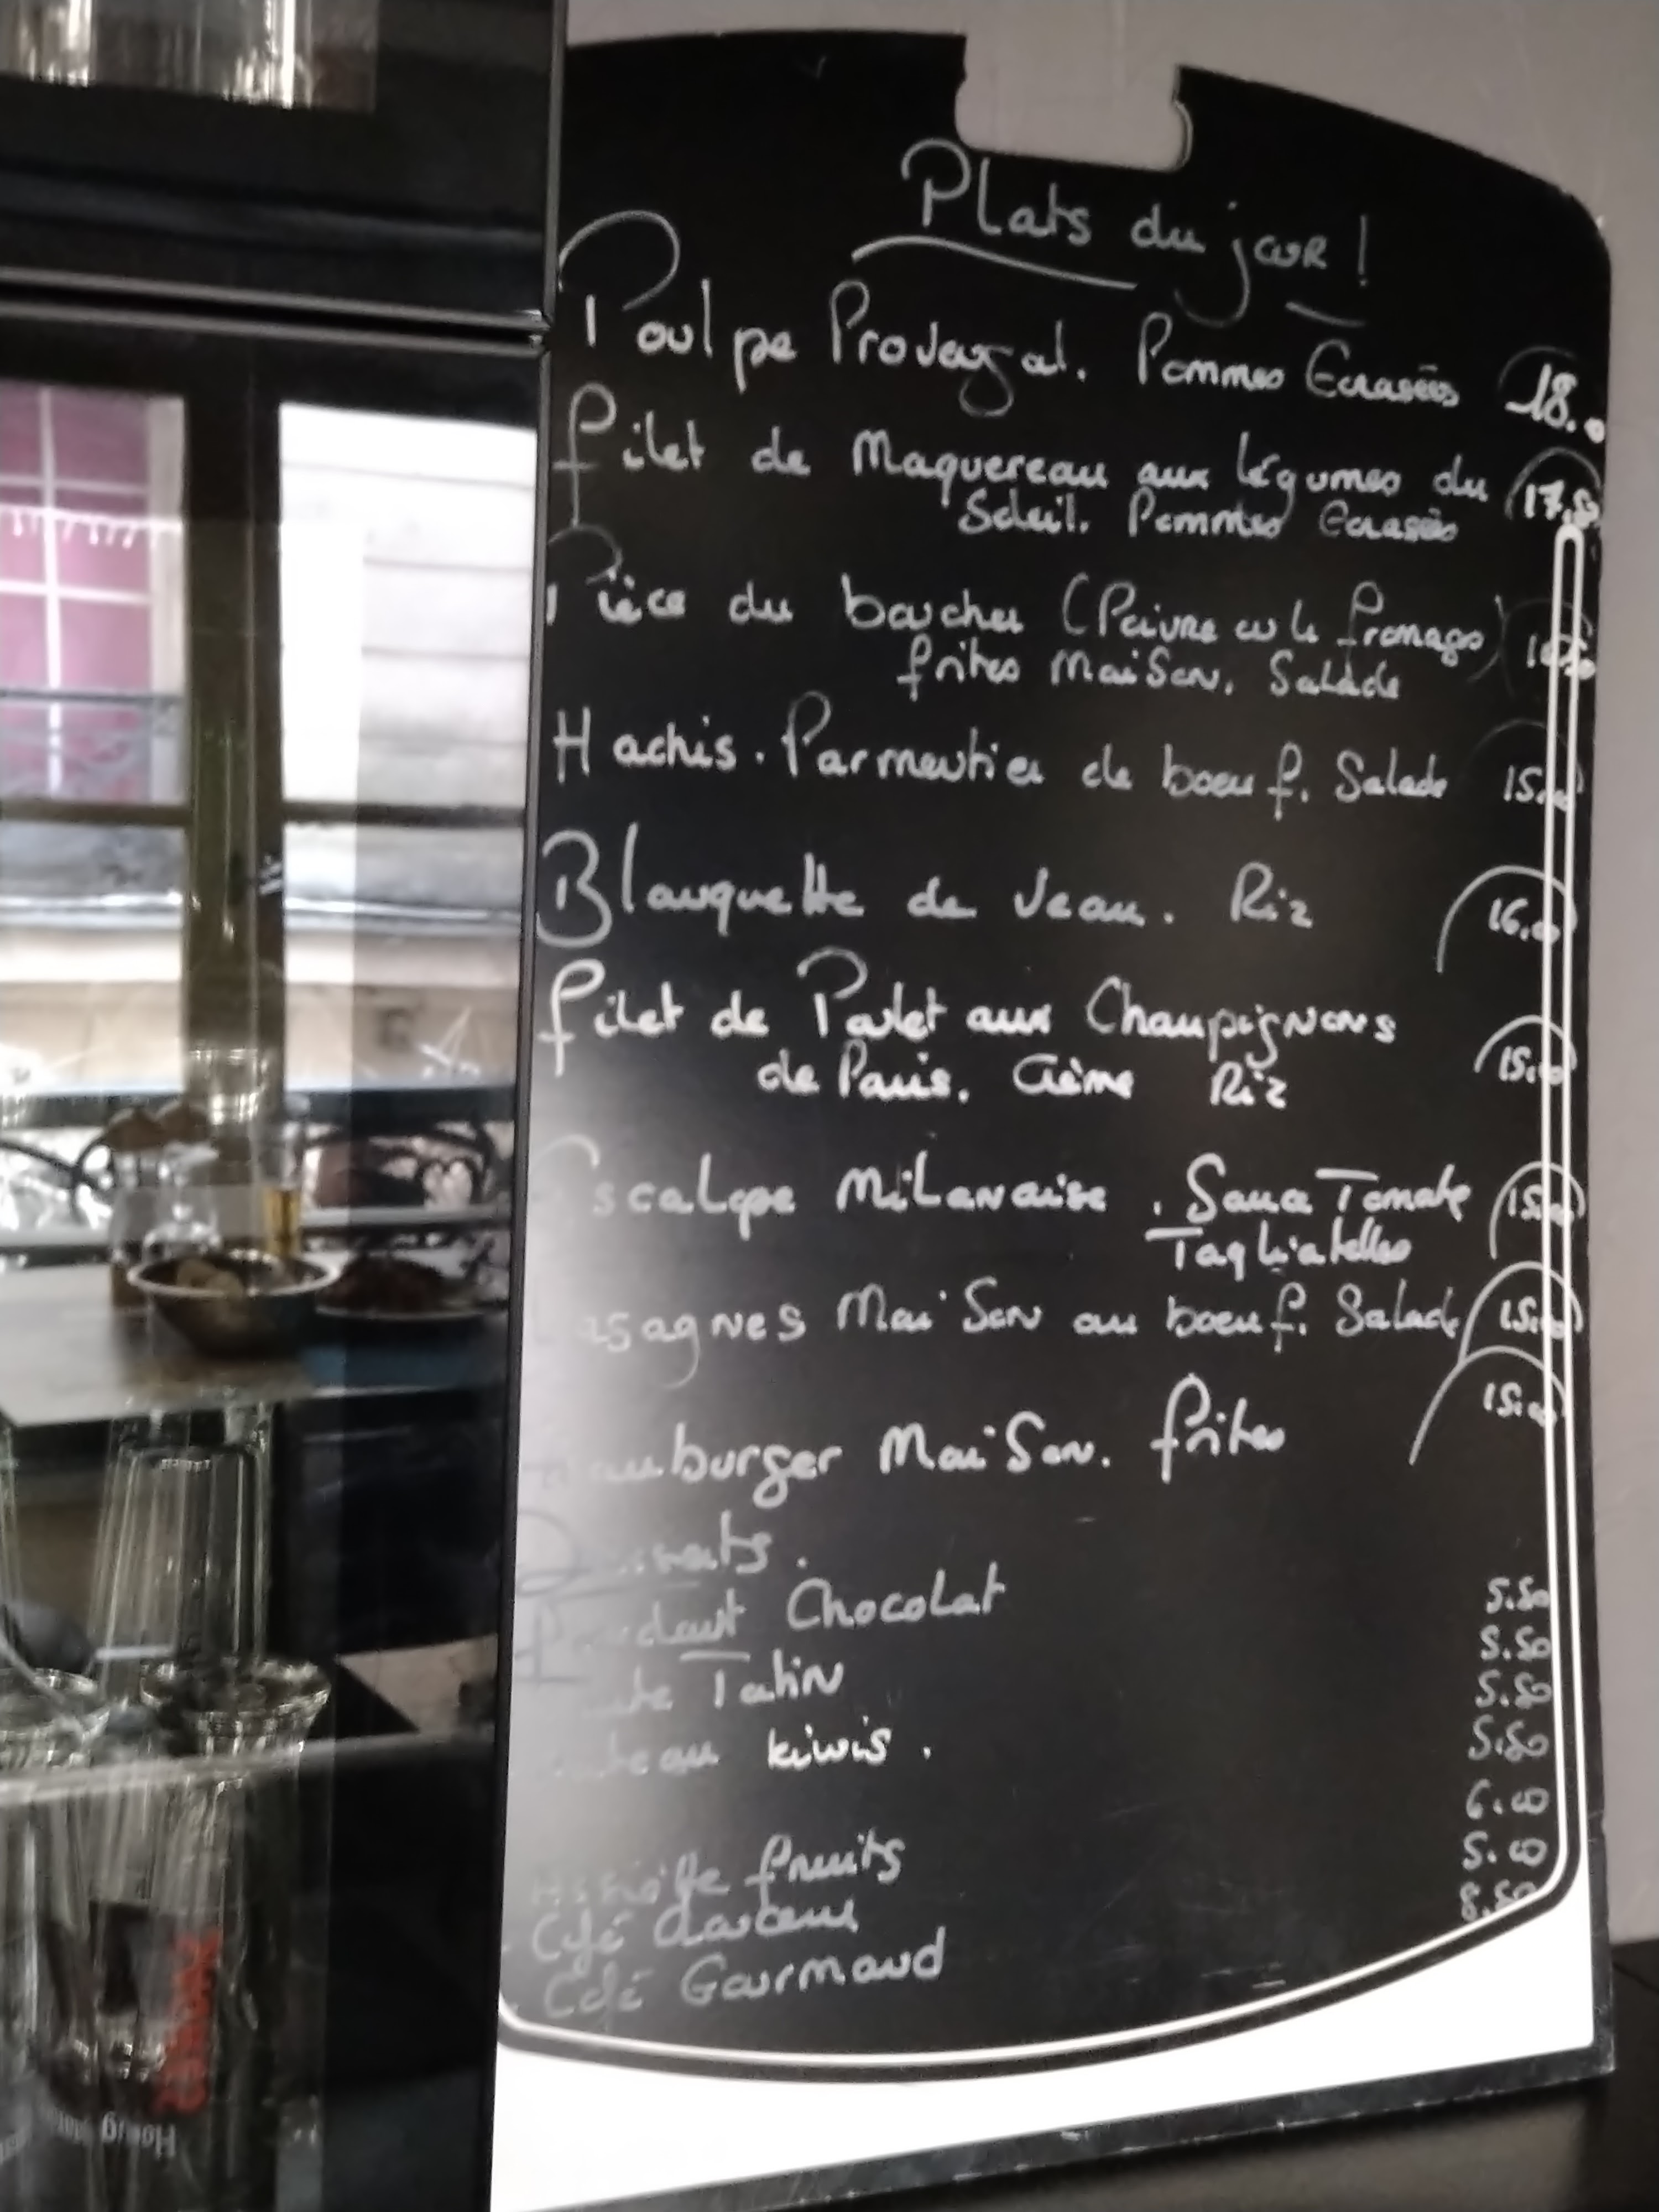 Plats du jour !
Poulpe Provençal. Pommes Ecrasées 18.00
filet de Maquereau aux légumes du 17.50
Soleil. Pommes Ecrasées
Pièce du boucher (Poivre ou le fromage)
frites Maison. Salade
Hachis. Parmentier de boeuf. Salade 15.00
Blanquette de Veau. Riz 16.00
filet de Poulet aux Champignons
de Paris. Crème Riz 15.00
Escalope Milanaise. Sauce Tomate 15.00
Tagliatelles
Lasagnes Maison au boeuf. Salade 15.00
Hamburger Maison. frites 15.00
Desserts.
Fondant Chocolat 5.50
Tatin 5.50
5.50
kiwis. 5.50
6.00
fruits 5.00
Café 8.50
Café Gourmand